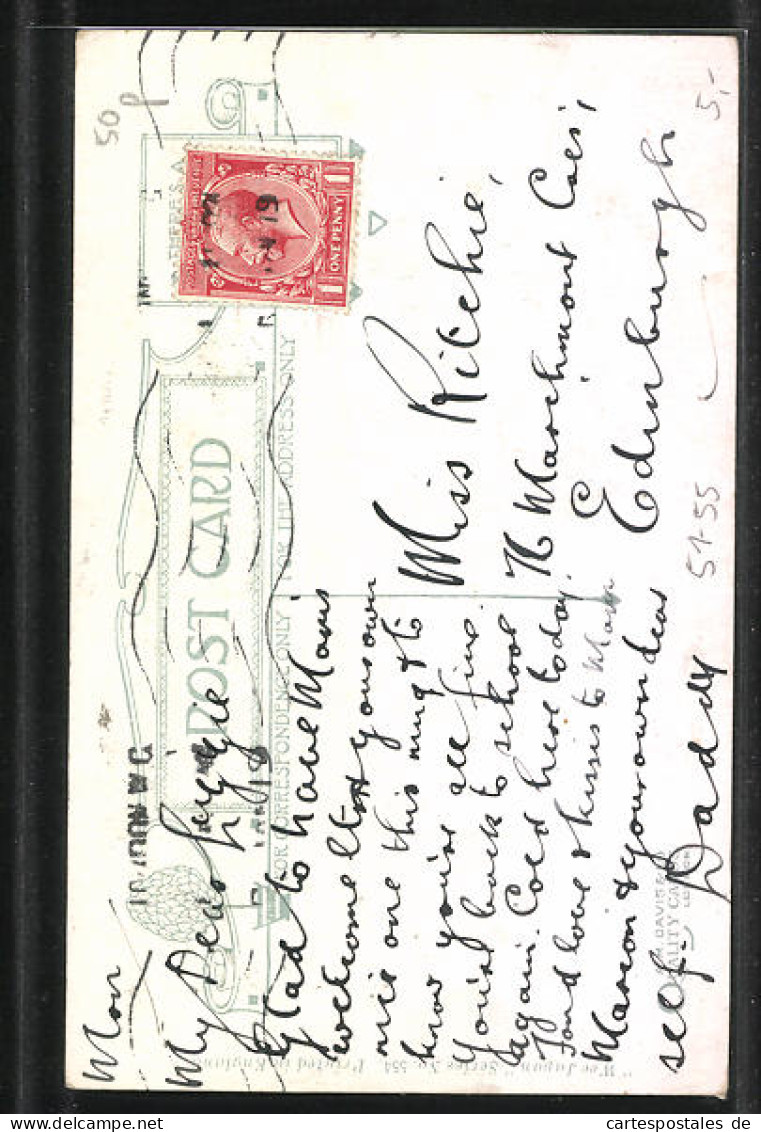 50p
5,-
ONE PENNY
1 1
POST CARD
FOR CORRESPONDENCE ONLY
FOR THE ADDRESS ONLY
Mon
My Dear Lizzie
Glad to have Mavis
welcome ltr & your own
nice one this mng & to
know you're all fine.
You're back to school
again. Cold here today.
Fond love & kisses to Mam
Marion & your own dear
self.
Daddy
Miss Ritchie,
76 Marchmont Cres,
Edinburgh
51-55
"Wee Japan" Series No. 554 Printed in England
DAVIS & Co
QUALITY CARDS
cartespostales de